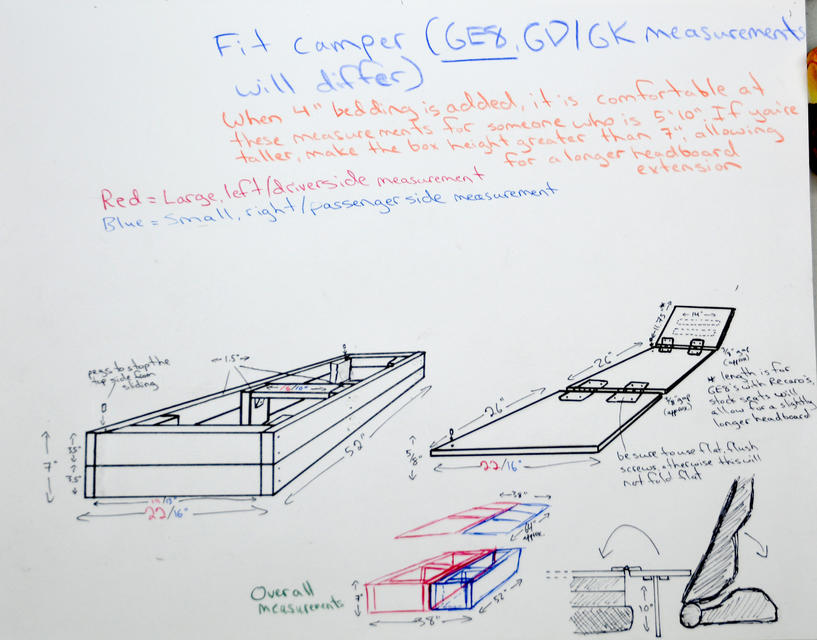 Fit camper (GE8, GD/GK measurements
will differ)
When 4" bedding is added, it is comfortable at
these measurements for someone who is 5'10". If you're
taller, make the box height greater than 7", allowing
for a longer headboard
extension
Red = Large, left/driverside measurement
Blue = Small, right/passenger side measurement
pegs to stop the
top side from
sliding
1.5"
7"
3.5"
3.5"
52"
22/16"
11.75"
14"
26"
26"
3/8" gap
(approx)
3/8" gap
(approx)
* length is for
GE8's with Recaro's,
stock seats will
allow for a slightly
longer headboard
5/8"
22/16"
be sure to use flat, flush
screws, otherwise this will
not fold flat
38"
64"
approx
Overall
measurements
7"
38"
52"
10"